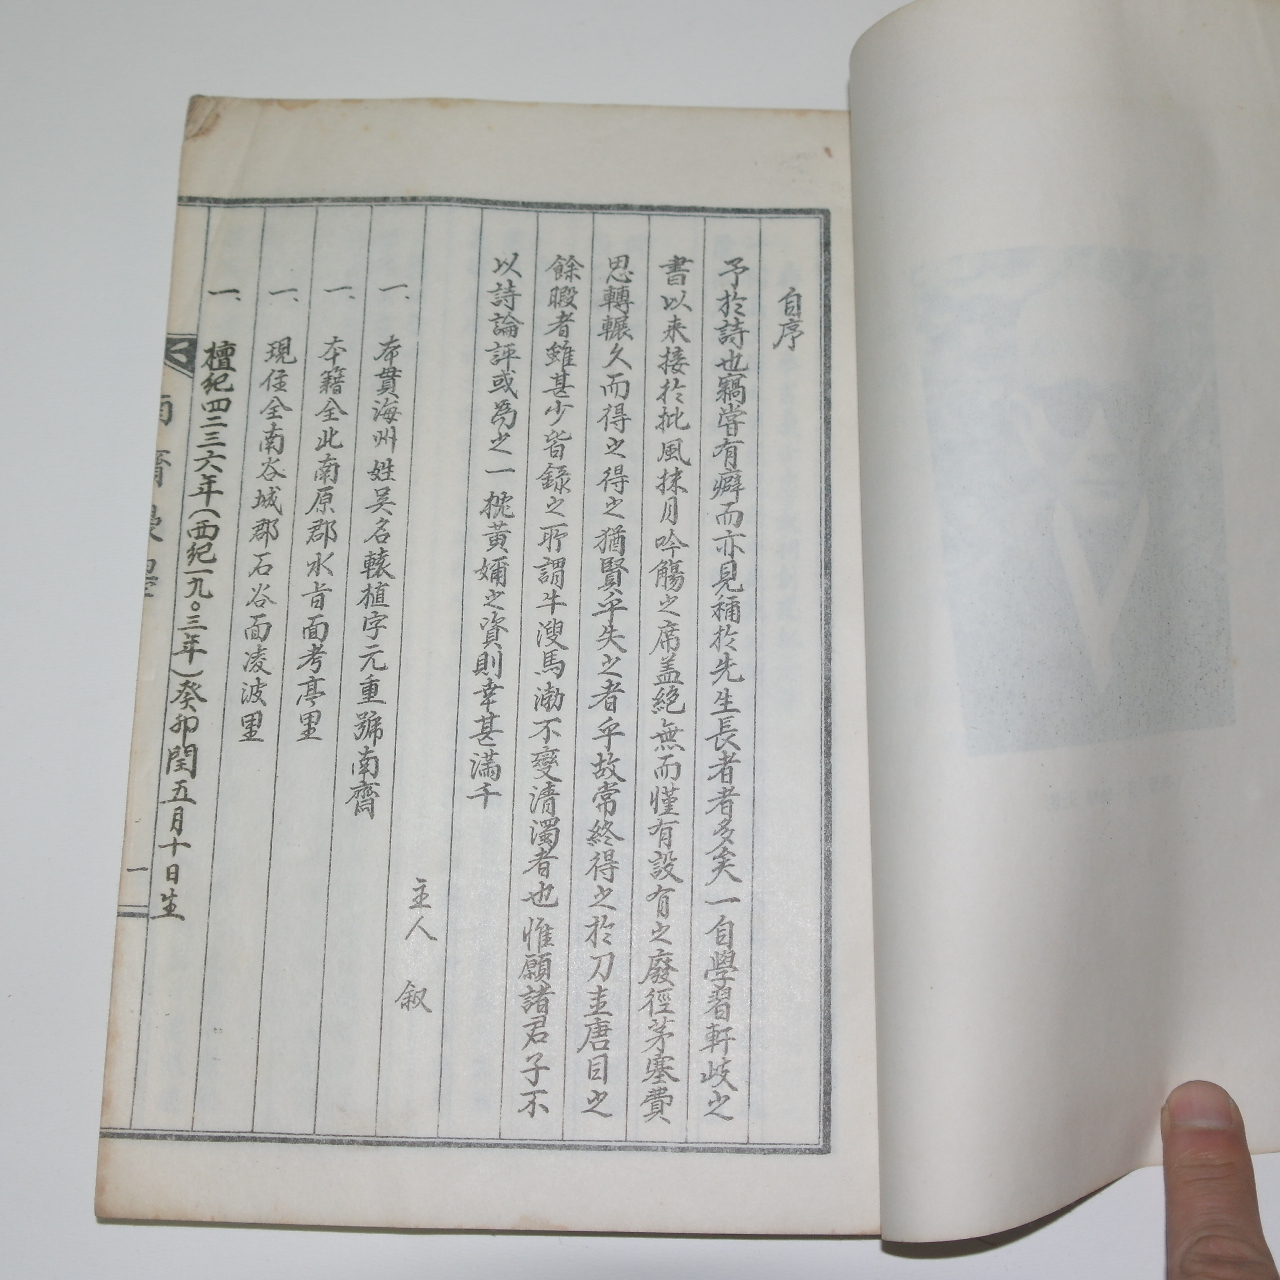 自序
予於詩也竊嘗有癖而亦見稱於先生長者者多矣一自學習軒岐之
書以来接於批風抹月吟觴之席盖絶無而慬有設有之廢徑茅塞費
思轉輾久而得之得之猶賢乎失之者乎故常終得之於刀圭唐目之
餘暇者雖甚少皆錄之所謂牛溲馬渤不變清濁者也惟願諸君子不
以詩論評或爲之一 黃嬭之資則幸甚滿千
主人 叙
一、 本貫海州姓吴名轅植字元重號南齋
一、 本籍全北南原郡水旨面考亭里
一、 現住全南谷城郡石谷面凌波里
一、 檀紀四二三六年(西紀一九〇三年)癸卯閏五月十日生
一